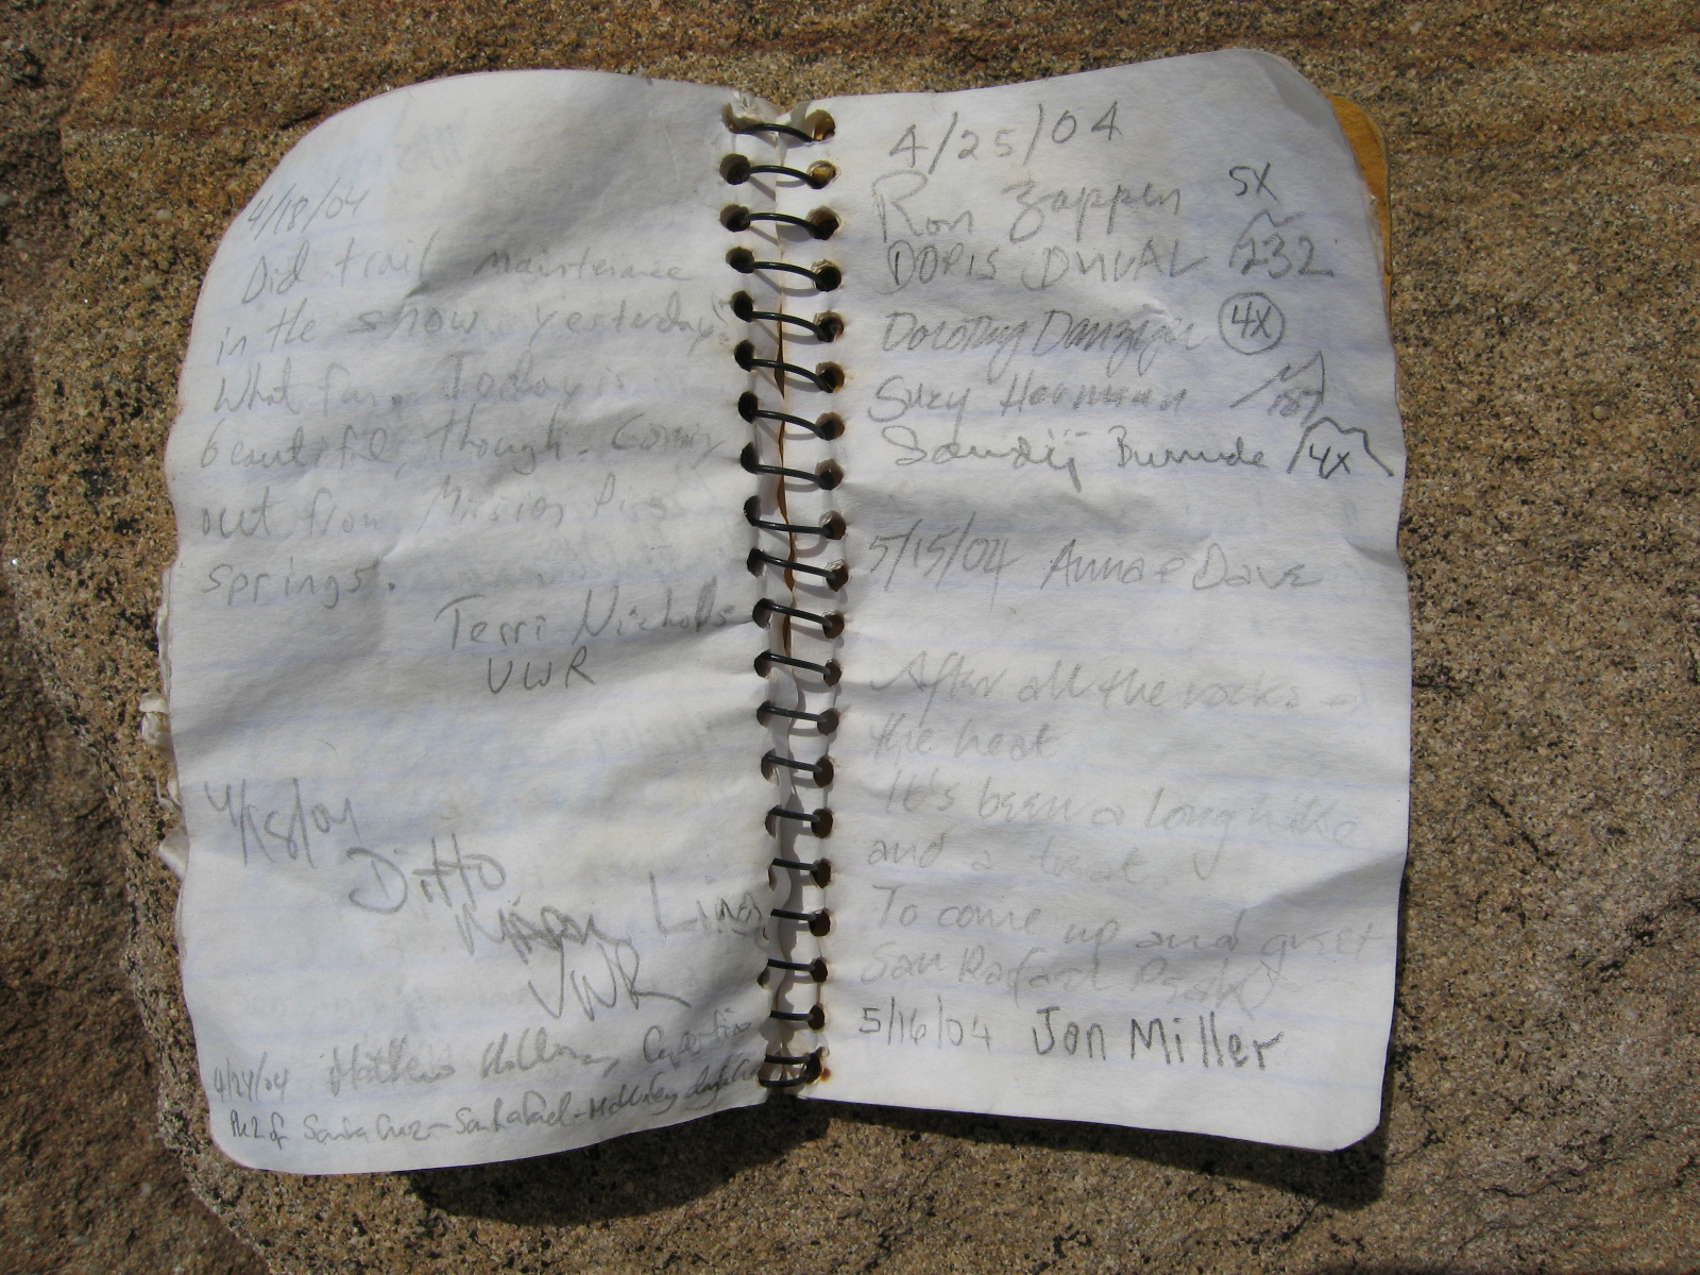 4/18/04
Did trail maintenance
in the snow yesterday.
What fun. Today is
beautiful, though. Coming
out from Mission Pine
springs.
Terri Nicholls
VWR
4/18/04
Ditto
VWR
4/24/04 Matthew
Pk 2 of Santa Cruz - San Rafael - McKinley dayhike
4/25/04
Ron Zappen 5X
DORIS DUVAL 232
Dorothy Danziger 4X
Suzy Hermann 187
4X
5/15/04 Anna & Dave
After all the rocks &
the heat
It's been a long hike
and a treat
To come up and greet
San Rafael Peak
5/16/04 Jon Miller